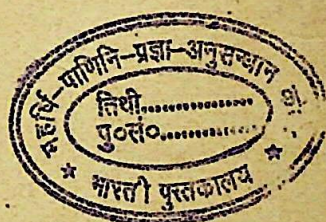 महर्षि-पाणिनि-प्रज्ञा-अनुसन्धान
तिथी................
पु०सं०..............
★ भारती पुस्तकालय ★